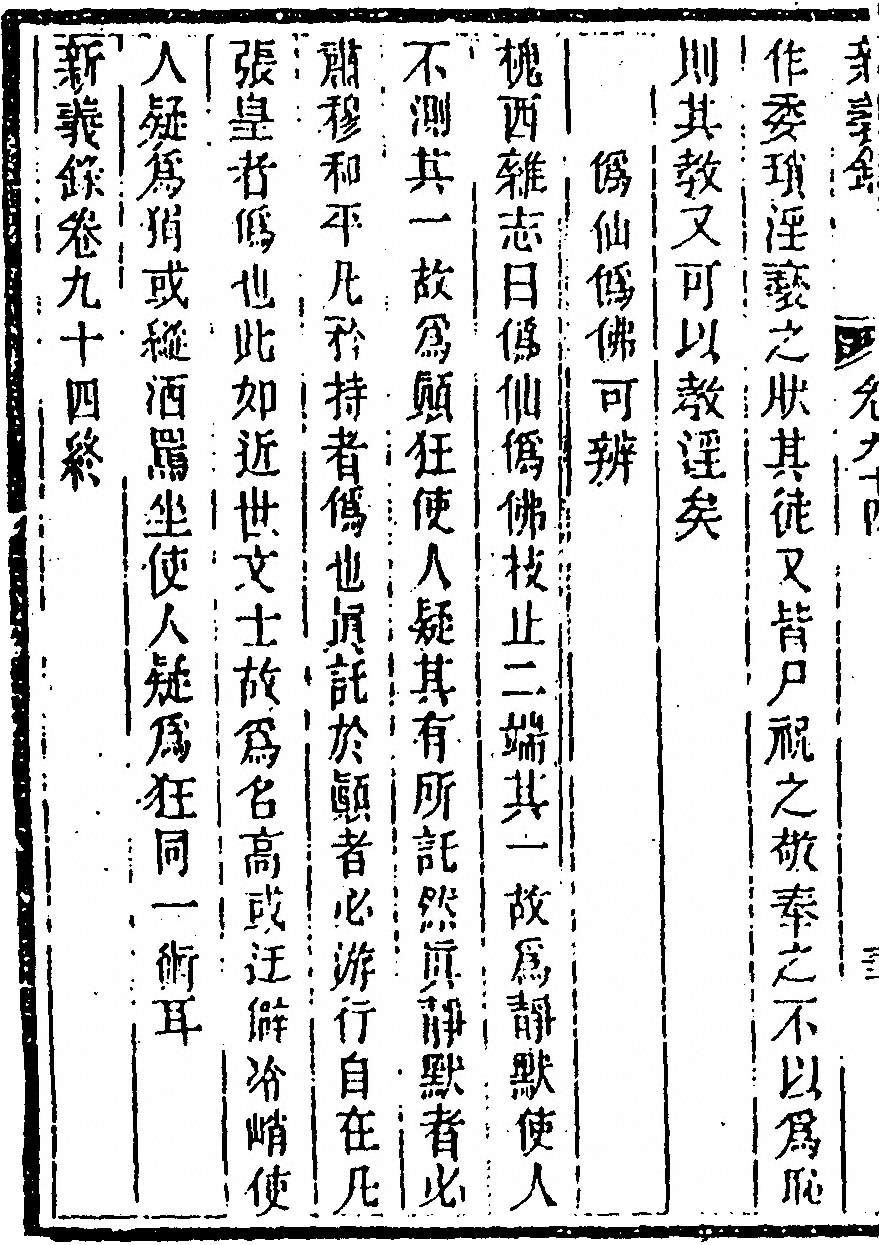 作委瑣淫褻之狀其徒又皆尸祝之敬奉之不以爲恥
則其教又可以教淫矣
僞仙僞佛可辨
槐西雜志曰僞仙僞佛技止二端其一故爲靜默使人
不測其一故爲顚狂使人疑其有所託然眞靜默者必
肅穆和平凡矜持者僞也眞託於顚者必游行自在凡
張皇者僞也此如近世文士故爲名高或迂僻冷峭使
人疑爲狷或縱酒罵坐使人疑爲狂同一術耳
新義錄卷九十四終